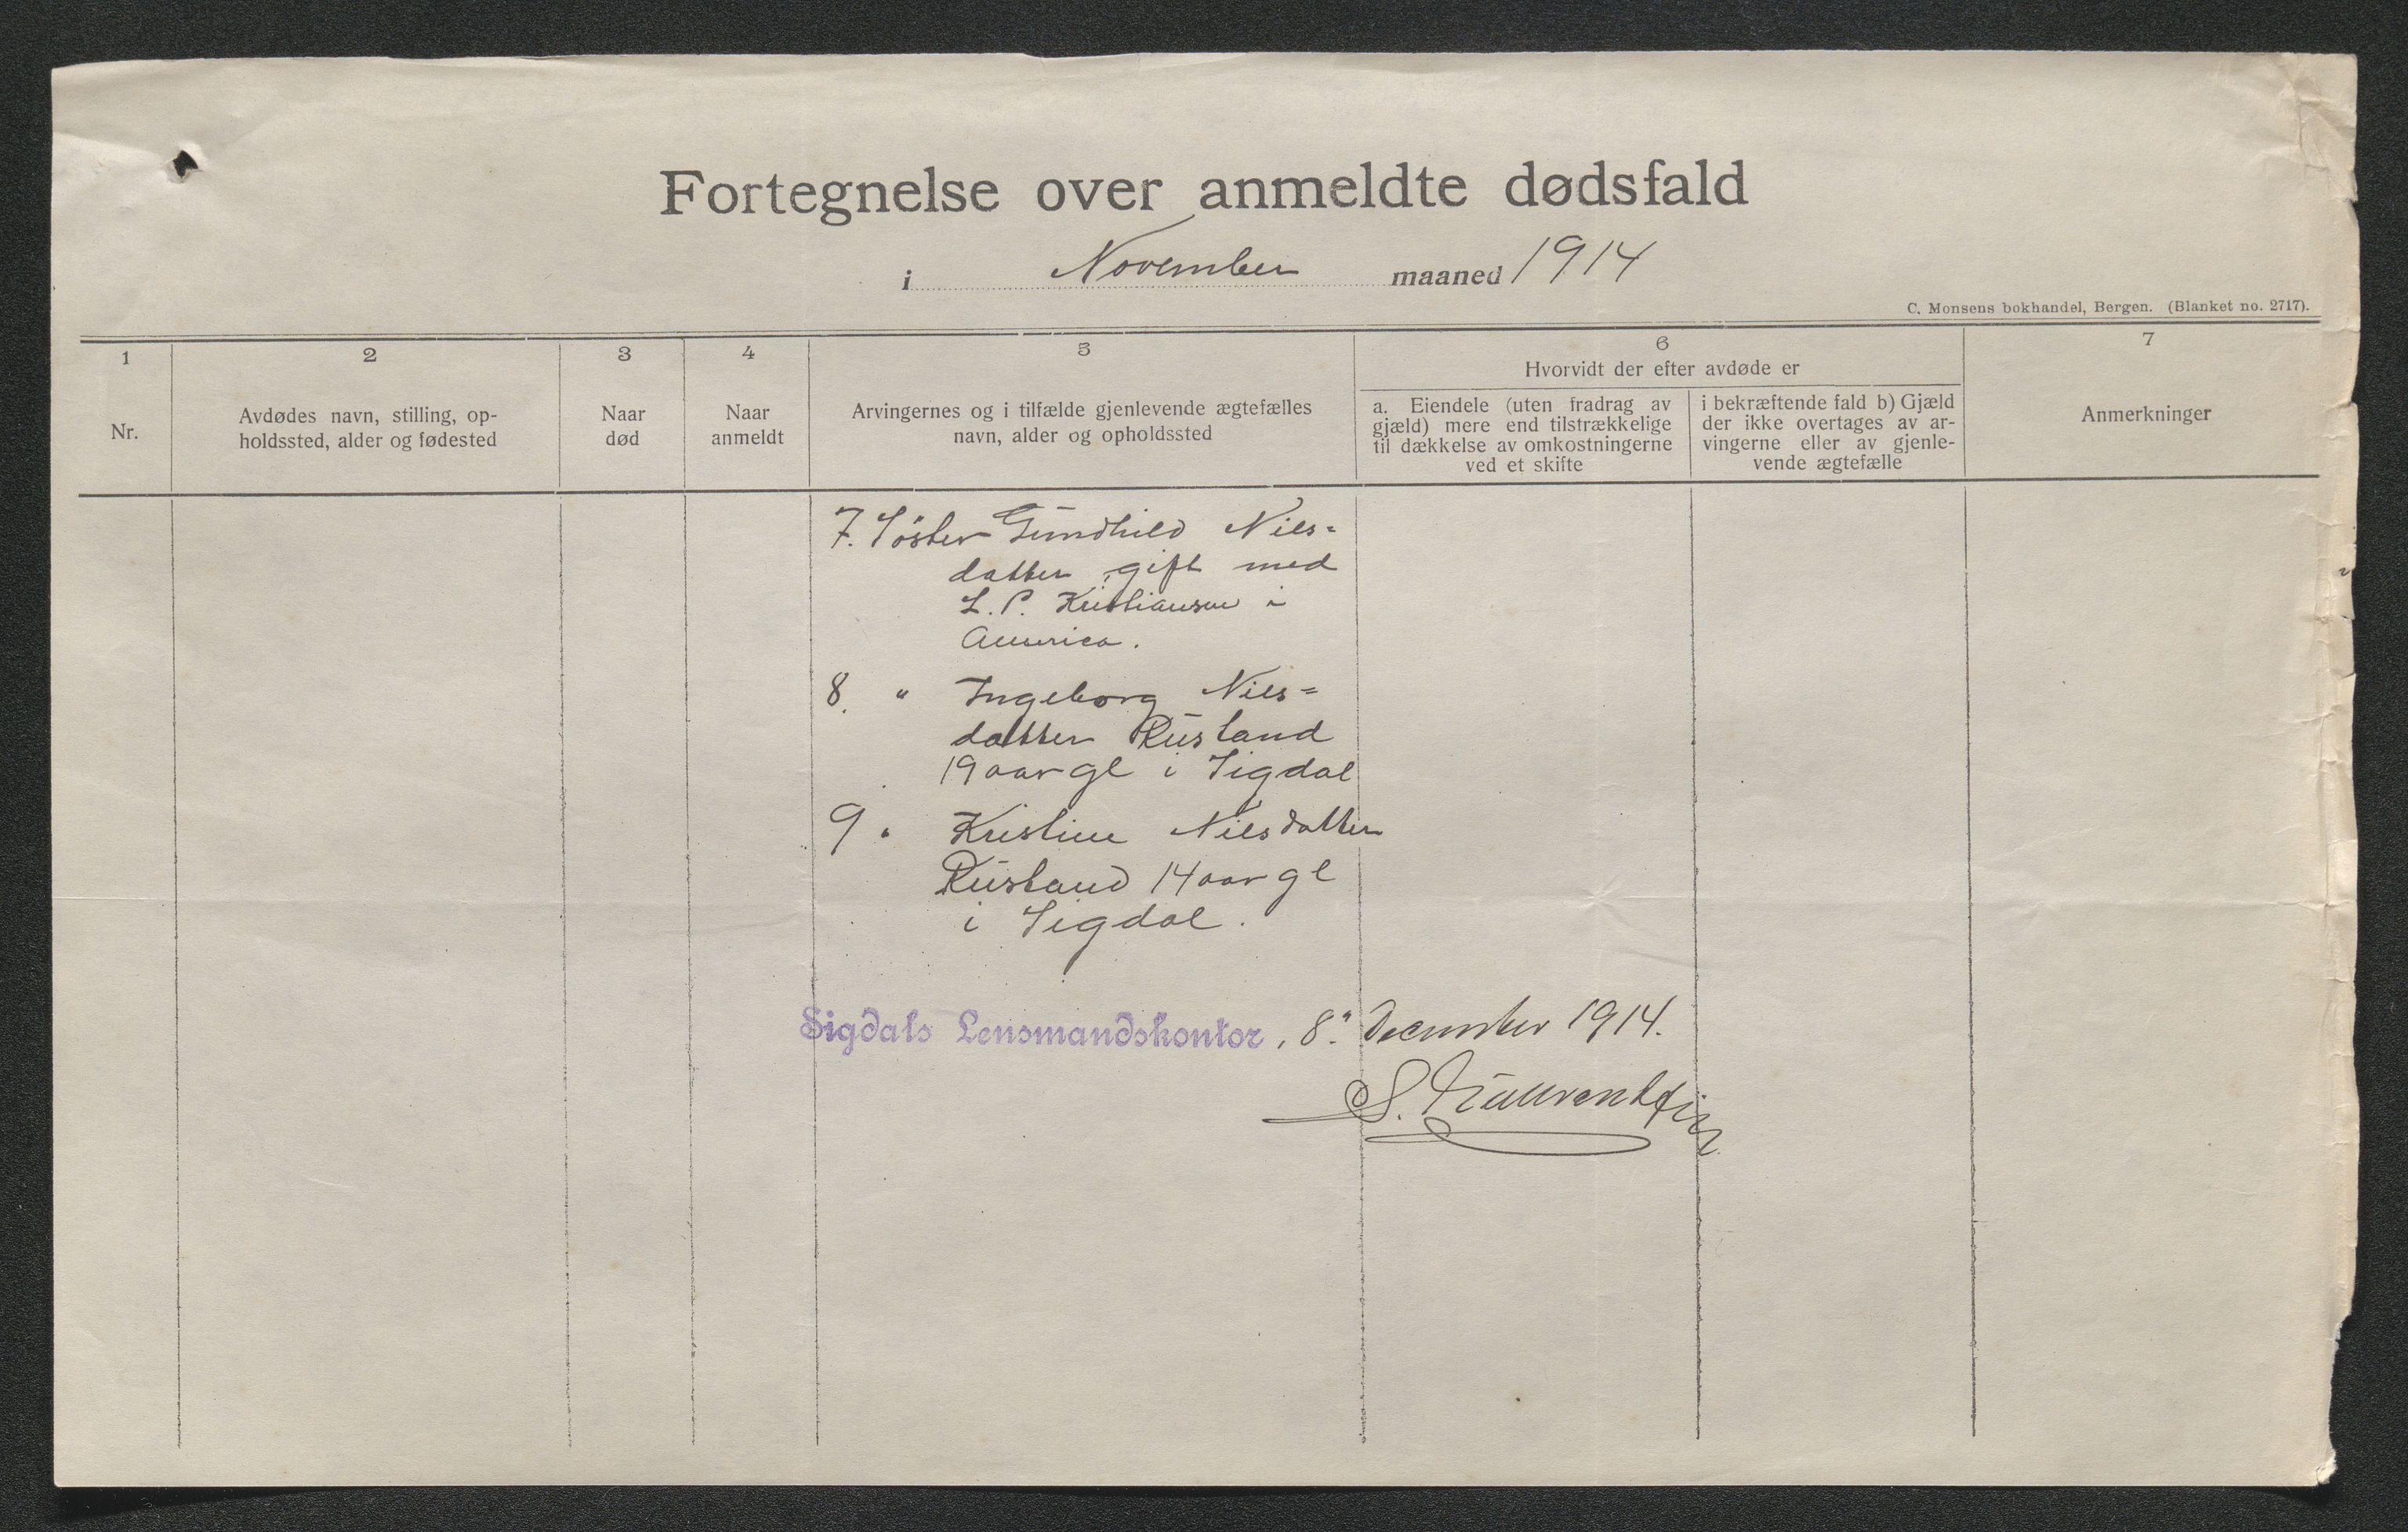 Fortegnelse over anmeldte dødsfald
i November maaned 1914
C. Monsens bokhandel, Bergen. (Blanket no. 2717).
1
Nr.
2
Avdødes navn, stilling, op-
holdssted, alder og fødested
3
Naar
død
4
Naar
anmeldt
5
Arvingernes og i tilfælde gjenlevende ægtefælles
navn, alder og opholdssted
6
Hvorvidt der efter avdøde er
a. Eiendele (uten fradrag av
gjæld) mere end tilstrækkelige
til dækkelse av omkostningerne
ved et skifte
i bekræftende fald b) Gjæld
der ikke overtages av ar-
vingerne eller av gjenle-
vende ægtefælle
7
Anmerkninger
7. Söster Gundhild Niels=
datter gift med
L. P. Kristiansen i
America.
8. " Ingeborg Niels=
datter Rusland
19 aar gl i Sigdal
9 " Kristine Nielsdatter
Rusland 14 aar gl
i Sigdal.
Sigdals Lensmandskontor, 8. December 1914.
S.